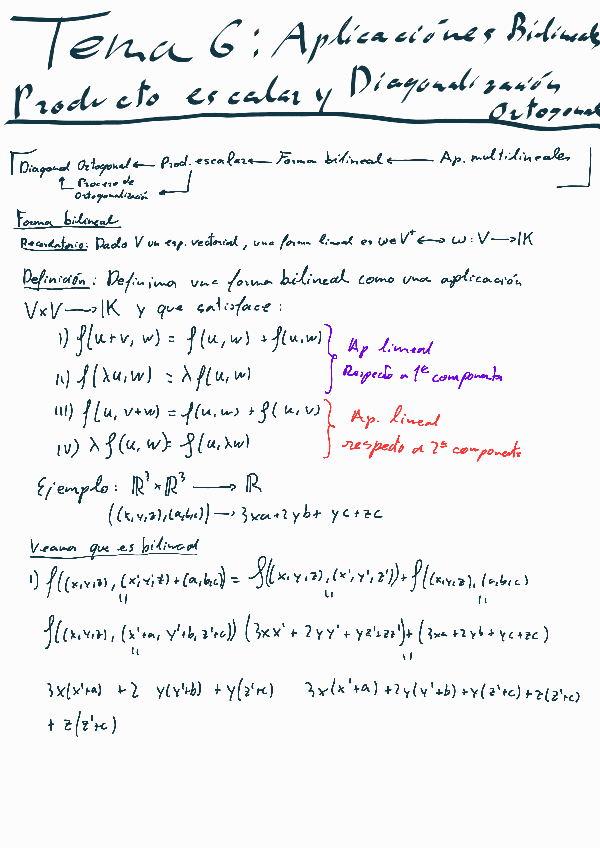 Tema 6: Aplicaciónes Bilineales
Producto escalar y Diagonalización
Ortogonal
Diagonal Ortogonal ← Prod. escalar ← Forma bilineal ← Ap. multilineales
Proceso de
Ortogonalización
Forma bilineal
Recordatorio: Dado V un esp. vectorial, una forma lineal es w∈V* ↔ w: V → IK
Definición: Definimos una forma bilineal como una aplicación
V×V → IK y que satisface:
i) f(u+v, w) = f(u, w) + f(u, w)
ii) f(λu, w) = λ f(u, w)
Ap lineal
Respecto a 1ª componente
iii) f(u, v+w) = f(u, w) + f(u, v)
iv) λ f(u, w) = f(u, λw)
Ap. lineal
respecto a 2ª componente
Ejemplo: ℝ³ × ℝ³ → ℝ
((x,y,z),(a,b,c)) → 3xa+2yb+yc+zc
Veamos que es bilineal
i) f((x,y,z), (x',y',z')+(a,b,c)) = f((x,y,z),(x',y',z')) + f((x,y,z),(a,b,c))
f((x,y,z), (x'+a, y'+b, z'+c)) (3xx' + 2yy' + yz'+zz') + (3xa+2yb+yc+zc)
3x(x'+a) + 2 y(y'+b) + y(z'+c) 3x(x'+a)+2y(y'+b)+y(z'+c)+z(z'+c)
+ z(z'+c)